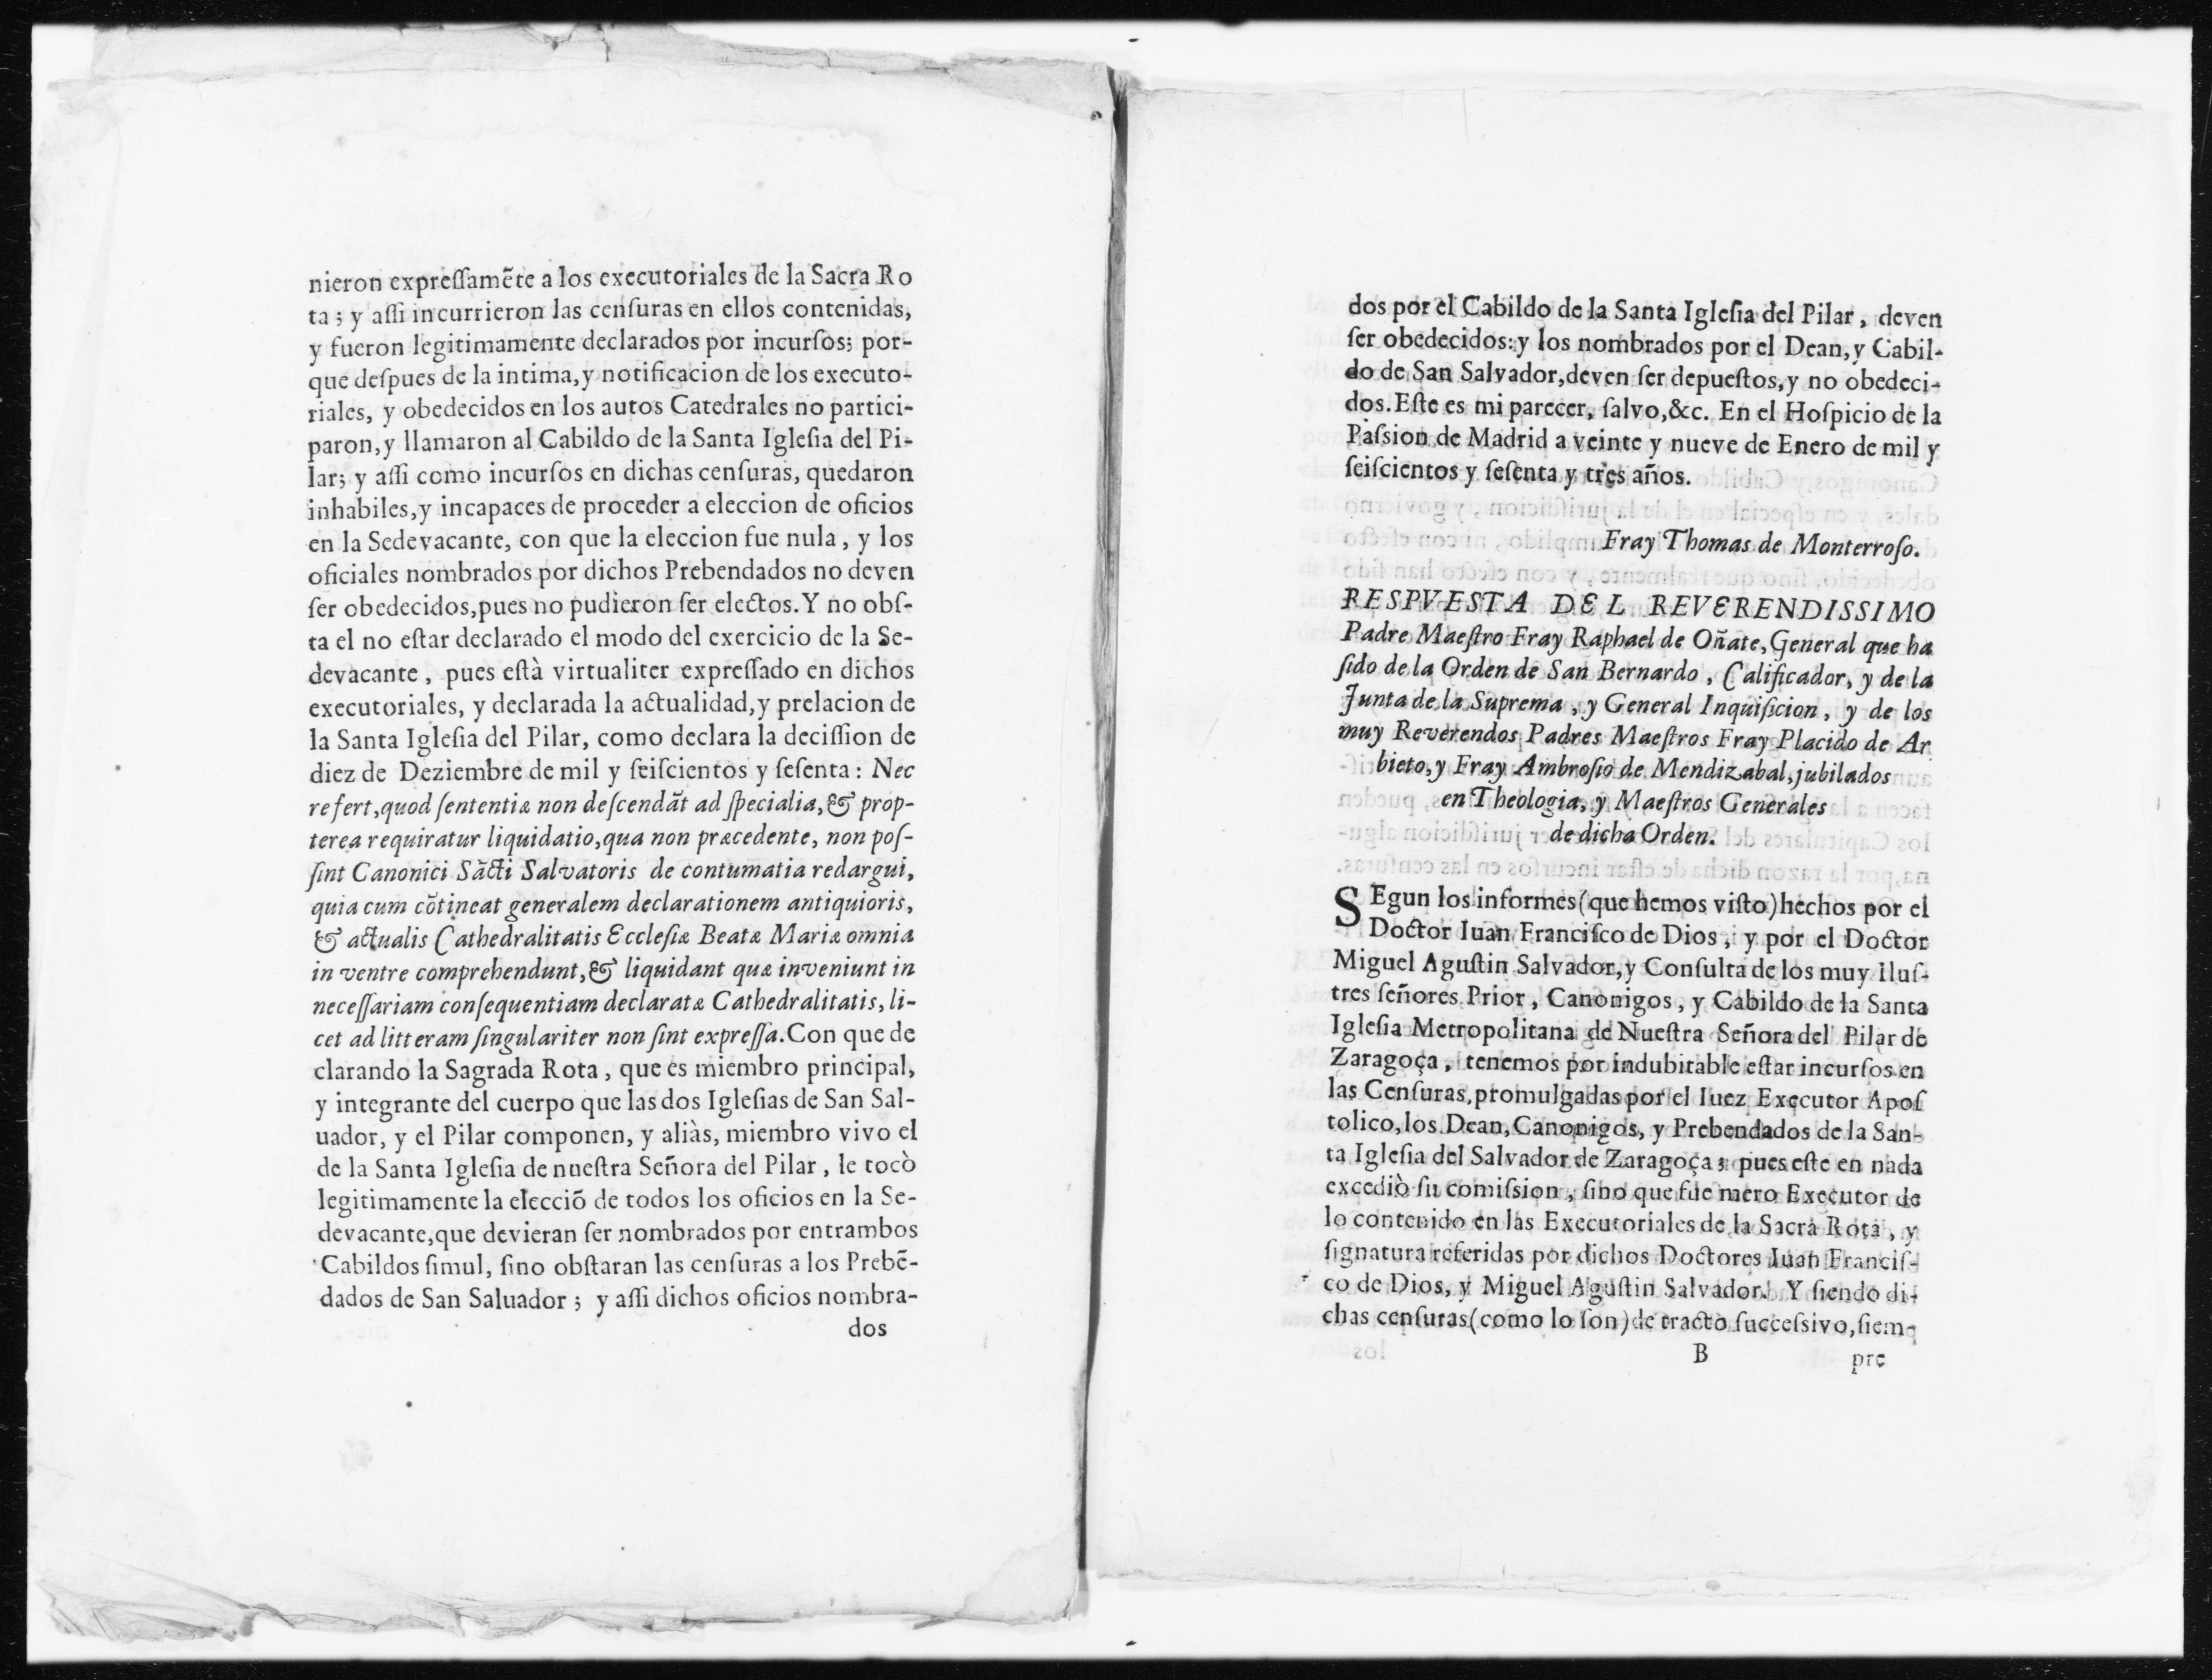 nieron expreſſamẽte a los executoriales de la Sacra Ro
ta; y aſſi incurrieron las cenſuras en ellos contenidas,
y fueron legitimamente declarados por incurſos; por-
que deſpues de la intima, y notificacion de los executo-
riales, y obedecidos en los autos Catedrales no partici-
paron, y llamaron al Cabildo de la Santa Igleſia del Pi-
lar; y aſſi como incurſos en dichas cenſuras, quedaron
inhabiles, y incapaces de proceder a eleccion de oficios
en la Sedevacante, con que la eleccion fue nula, y los
oficiales nombrados por dichos Prebendados no deven
ſer obedecidos, pues no pudieron ſer electos. Y no obſ-
ta el no eſtar declarado el modo del exercicio de la Se-
devacante, pues eſtà virtualiter expreſſado en dichos
executoriales, y declarada la actualidad, y prelacion de
la Santa Igleſia del Pilar, como declara la deciſſion de
diez de Deziembre de mil y ſeiſcientos y ſeſenta: Nec
refert, quod ſententiæ non deſcendãt ad ſpecialia, & prop-
terea requiratur liquidatio, qua non præcedente, non poſ-
ſint Canonici Sãcti Salvatoris de contumatia redargui,
quia cum cõtineat generalem declarationem antiquioris,
& actualis Cathedralitatis Eccleſiæ Beatæ Mariæ omnia
in ventre comprehendunt, & liquidant quæ inveniunt in
neceſſariam conſequentiam declaratæ Cathedralitatis, li-
cet ad litteram ſingulariter non ſint expreſſa. Con que de
clarando la Sagrada Rota, que es miembro principal,
y integrante del cuerpo que las dos Igleſias de San Sal-
uador, y el Pilar componen, y aliàs, miembro vivo el
de la Santa Igleſia de nueſtra Señora del Pilar, le tocò
legitimamente la elecciõ de todos los oficios en la Se-
devacante, que devieran ſer nombrados por entrambos
Cabildos ſimul, ſino obſtaran las cenſuras a los Prebẽ-
dados de San Saluador; y aſſi dichos oficios nombra-
dos
dos por el Cabildo de la Santa Igleſia del Pilar, deven
ſer obedecidos: y los nombrados por el Dean, y Cabil-
do de San Salvador, deven ſer depueſtos, y no obedeci-
dos. Eſte es mi parecer, ſalvo, &c. En el Hoſpicio de la
Paſsion de Madrid a veinte y nueve de Enero de mil y
ſeiſcientos y ſeſenta y tres años.
Fray Thomas de Monterroſo.
RESPVESTA DEL REVERENDISSIMO
Padre Maeſtro Fray Raphael de Oñate, General que ha
ſido de la Orden de San Bernardo, Calificador, y de la
Junta de la Suprema, y General Inquiſicion, y de los
muy Reverendos Padres Maeſtros Fray Placido de Ar
bieto, y Fray Ambroſio de Mendizabal, jubilados
en Theologia, y Maeſtros Generales
de dicha Orden.
SEgun los informes (que hemos viſto) hechos por el
Doctor Iuan Franciſco de Dios, y por el Doctor
Miguel Aguſtin Salvador, y Conſulta de los muy Iluſ-
tres ſeñores Prior, Canonigos, y Cabildo de la Santa
Igleſia Metropolitana de Nueſtra Señora del Pilar de
Zaragoça, tenemos por indubitable eſtar incurſos en
las Cenſuras, promulgadas por el Iuez Executor Apoſ
tolico, los Dean, Canonigos, y Prebendados de la San-
ta Igleſia del Salvador de Zaragoça; pues eſte en nada
excediò ſu comiſsion, ſino que fue mero Executor de
lo contenido en las Executoriales de la Sacra Rota, y
ſignatura referidas por dichos Doctores Iuan Franciſ-
co de Dios, y Miguel Aguſtin Salvador. Y ſiendo di-
chas cenſuras (como lo ſon) de tracto ſucceſsivo, ſiem-
B pre